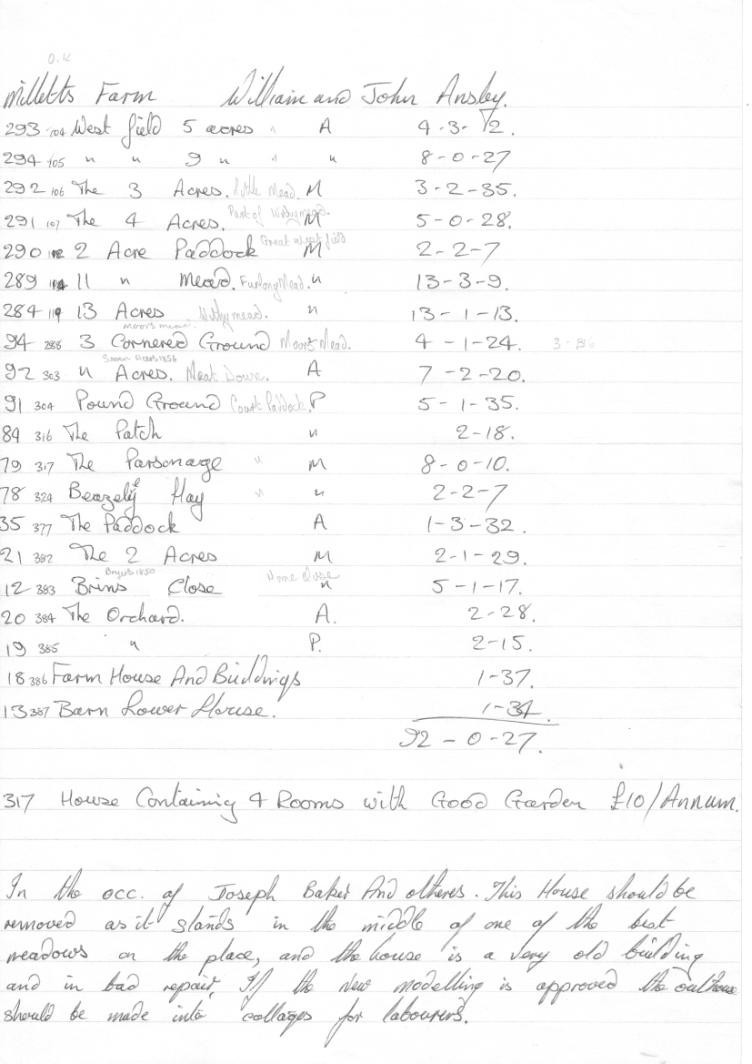 O.K
Milletts Farm William and John Ansley.
293 104 West field 5 acres " A 4-3-1/2.
294 105 " " 9 " " " 8-0-27
292 106 The 3 Acres. Little Mead. M 3-2-35.
291 107 The 4 Acres. Part of M 5-0-28.
290 2 Acre Paddock Great west field M 2-2-7
289 11 " Mead. Furlong Mead. " 13-3-9.
284 119 13 Acres Withymead. " 13-1-13.
Moors mead.
94 288 3 Cornered Ground Moors Mead. 4-1-24.
92 303 " Acres. A 7-2-20.
91 304 Pound Ground Court Paddock. P 5-1-35.
84 316 The Patch " 2-18.
79 317 The Parsonage " M 8-0-10.
78 324 Beazely Hay " " 2-2-7
35 377 The Paddock A 1-3-32.
21 382 The 2 Acres M 2-1-29.
12 383 Brins Close Home Close " 5-1-17.
20 384 The Orchard. A. 2-28.
19 385 " P. 2-15.
18 386 Farm House And Buildings 1-37.
13 387 Barn Lower House. 1-34.
92-0-27.
317 House Containing 4 Rooms with Good Garden £10/Annum.
In the occ. of Joseph Baker And otheres. This House should be
removed as it stands in the middle of one of the best
meadows on the place, and the house is a very old building
and in bad repair, If the New modelling is approved the outhouse
should be made into cottages for labourers.